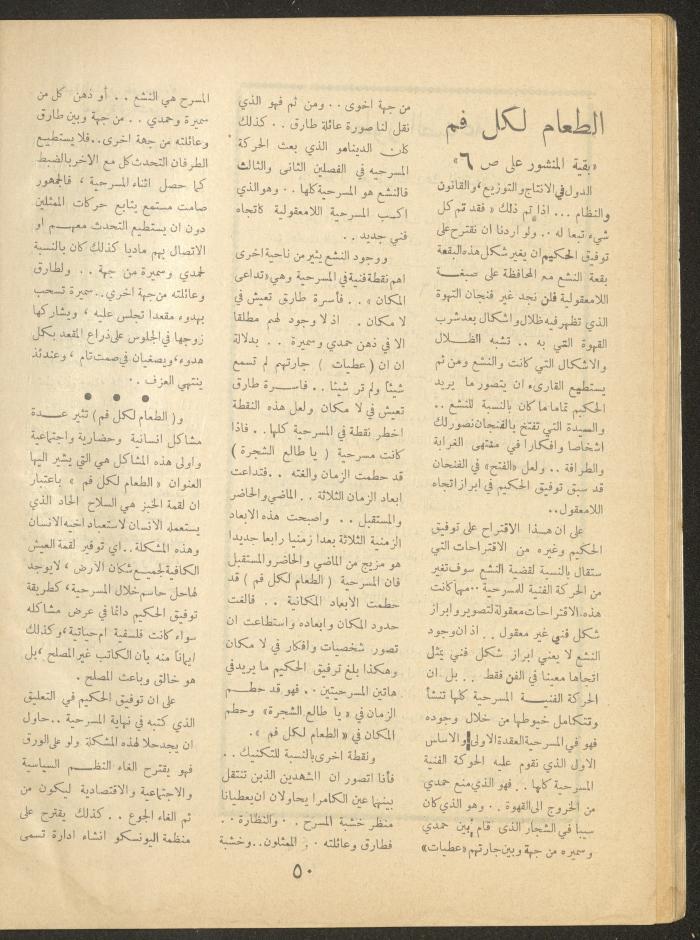 الطعام لكل فم
«بقية المنشور على ص ٦»
الدول في الانتاج والتوزيع، والقانون
والنظام ... اذا تم ذلك « فقد تم كل
شيء تبعا له .. ولو اردنا ان نقترح على
توفيق الحكيم ان يغير شكل هذه البقعة
بقعة النشع مع المحافظة على صبغة
اللامعقولية فلن نجد غير فنجان القهوة
الذي تظهر فيه ظلال واشكال بعد شرب
القهوة التي به .. تشبه الظلال
والاشكال التي كانت والنشع ومن ثم
يستطيع القارىء ان يتصور ما يريد
الحكيم تماما ما كان بالنسبة للنشع ..
والسيدة التي تفتخ بالفنجان تصور لك
اشخاصا وافكارا في منتهى الغرابة
والطرافة .. ولعل «الفتح» في الفنجان
قد سبق توفيق الحكيم في ابراز اتجاه
اللامعقول ..
على ان هذا الاقتراح على توفيق
الحكيم وغيره من الاقتراحات التي
ستقال بالنسبة لقضية النشع سوف تغير
من الحركة الفنية للمسرحية .. مهما كانت
هذه الاقتراحات معقولة لتصوير وابراز
شكل فني غير معقول .. اذ ان وجود
النشع لا يعني ابراز شكل فني يمثل
اتجاها معينا في الفن فقط .. بل ان
الحركة الفنية المسرحية كلها تنشأ
وتتكامل خيوطها من خلال وجوده
فهو في المسرحية العقدة الاولى والاساس
الاول الذي نقوم عليه الحركة الفنية
المسرحية كلها .. فهو الذي منع حمدي
من الخروج الى القهوة .. وهو الذي كان
سببا في الشجار الذى قام بين حمدي
وسميره من جهة وبين جارتهم «عطيات»
من جهة اخوى .. ومن ثم فهو الذي
نقل لنا صورة عائلة طارق .. كذلك
كان الدينامو الذي بعث الحركة
المسرحيه في الفصلين الثانى والثالث
فالنشع هو المسرحية كلها .. وهو الذي
اكسب المسرحية اللامعقولية كاتجاه
فني جديد ..
ووجود النشع يثير من ناحية اخرى
اهم نقطة فنية في المسرحية وهي «تداعى
المكان » .. فأسرة طارق تعيش في
لا مكان . اذ لا وجود لهم مطلقا
الا في ذهن حمدي وسميرة .. بدلالة
ان ان (عطيات ) جارتهم لم تسمع
شيئاً ولم تر شيئا .. فاسرة طارق
تعيش في لا مكان ولعل هذه النقطة
اخطر نقطة في المسرحية كلها .. فاذا
كانت مسرحية ( يا طالع الشجرة )
قد حطمت الزمان والغته .. فتداعت
ابعاد الزمان الثلاثة .. الماضي والحاضر
والمستقبل .. واصبحت هذه الابعاد
الزمنية الثلاثة بعدا زمنيا رابعا جديدا
هو مزيج من الماضي والحاضر والمستقبل
فان المسرحية (الطعام لكل فم ) قد
حطمت الابعاد المكانية .. فالغت
حدود المكان وابعاده واستطاعت ان
تصور شخصيات وافكار في لا مكان
وهكذا بلغ ترفيق الحكيم ما يريد في
هاتين المسرحيتين .. فهو قد حطم
الزمان في « يا طالع الشجرة» وحطم
المكان في « الطعام لكل فم » .
ونقطة اخرى بالنسبة للتكنيك ..
فأنا اتصور ان المشهدين الذين تنتقل
بينهما عين الكامرا يحاولان ان يعطيانا
منظر خشبة المسرح .. والنظارة ..
فطارق وعائلته .. الممثلون .. وخشبة
المسرح هي النشع .. أو ذهن كل من
سميرة وحمدي .. من جهة وبين طارق
وعائلته من جهة اخرى .. فلا يستطيع
الطرفان التحدث كل مع الاخر بالضبط
كما حصل اثناء المسرحية ، فالجمهور
صامت مستمع يتابع حركات الممثلين
دون ان يستطيع التحدث معهم او
الاتصال بهم ماديا كذلك كان بالنسبة
لحمدي وسميرة من جهة .. ولطارق
وعائلته من جهة اخري .. سميرة تسحب
بهدوء مقعدا تجلس عليه ، ويشاركها
زوجها في الجلوس على ذراع المقعد بكل
هدوء، ويصغيان في صمت تام ، وعندئذ
ينتهي العزف ..
● ● ●
و( الطعام لكل فم ) تثير عدة
مشاكل انسانية وحضارية واجتماعية
واولى هذه المشاكل هي التي يشير اليها
العنوان « الطعام لكل فم » باعتبار
ان لقمة الخبز هي السلاح الحاد الذي
يستعمله الانسان لاستعباد اخيه الانسان
وهذه المشكلة .. اي توفير لقمة العيش
الكافية لجميع سكان الارض ، لا يوجد
لها حل حاسم خلال المسرحية، كطريقة
توفيق الحكيم دائما في عرض مشاكله
سواء كانت فلسفية ام حياتية ، وكذلك
ايمانا منه بأن الكاتب غير المصلح ، بل
هو خالق وباعث المصلح .
على ان توفيق الحكيم في التعليق
الذي كتبه في نهاية المسرحية .. حاول
ان يجد حلا لهذه المشكلة ولو على الورق
فهو يقترح الغاء النظم السياسية
والاجتماعية والاقتصادية ليكون من
ثم الغاء الجوع .. كذلك يقترح على
منظمة اليونسكو انشاء ادارة تسمى
٥٠